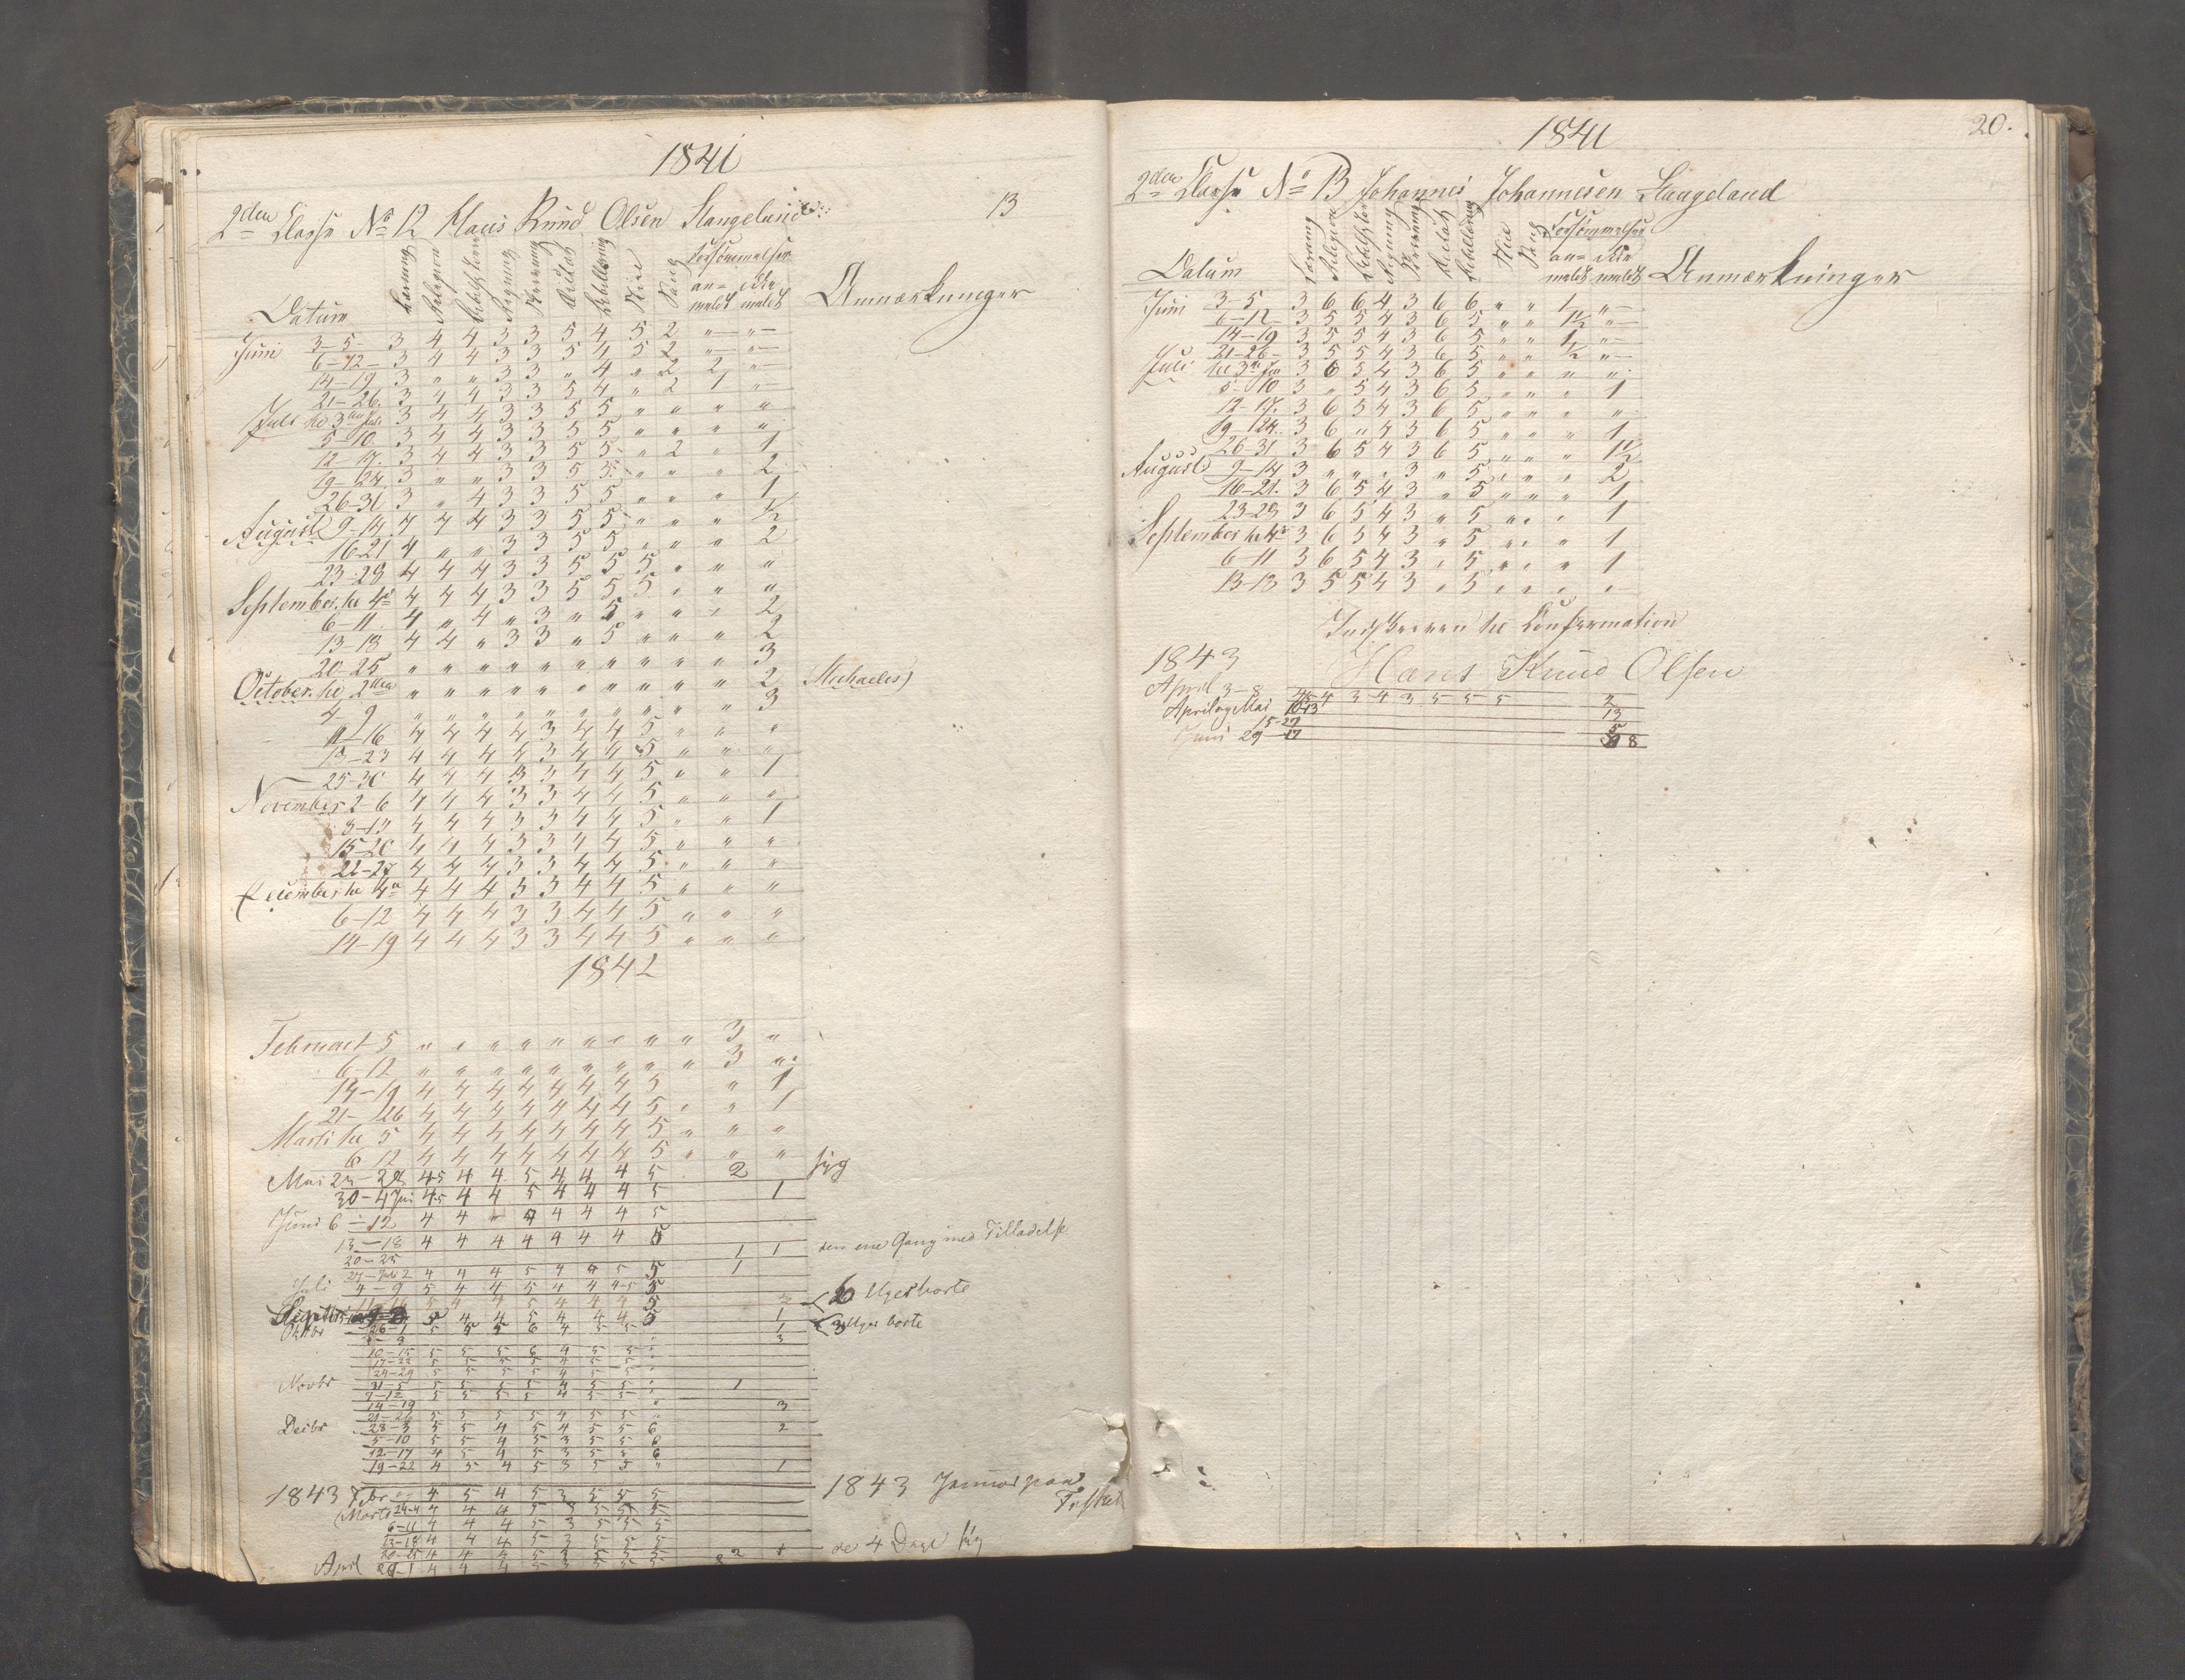 1841
13
2den Classe No 12 Hans Knud Olsen Stangeland
Forsømmelser
an= ikke
meldt meldt
Datum Læsning Religion Regning Skrivning Diktat Sang Anmærkninger
Juni 3–5 3 4 4 3 3 5 4 5 2 " "
6–12 3 4 4 3 3 5 4 5 2 " "
14–19 3 " " 3 3 " 4 " 2 2 "
21–26. 3 4 4 3 3 5 4 " 2 1 "
Juli 3 4 4 3 3 5 5 " " " "
5–10 3 4 4 3 3 5 5 " " " "
12–17. 3 4 4 3 3 5 5 " 2 " 1
19–24. 3 " " 3 3 5 5 " " " 2
26–31 3 " 4 3 3 5 5 " " " 1
August 9–14. 4 4 4 3 3 5 5 " " " 1/2
16–21 4 " " 3 3 5 5 " " " 2
23–29 4 4 4 3 3 5 5 5 " " "
September. 4 4 4 3 3 5 5 5 " " "
6–11. 4 " 4 " 3 " 5 " " " 2
13–18 4 4 " 3 3 " 5 " " " 2
20–25 " " " " " " " " " " 3
October. " " " " " " " " " " 2 Michaelis
4 9 " " " " " " " " " " 3
11–16 4 4 4 4 3 4 4 5 " " "
18–23 4 4 4 4 3 4 4 5 " " "
25–30 4 4 4 3 3 4 4 5 " " 1
November 2–6 4 4 4 3 3 4 4 5 " " "
8–13 4 4 4 3 3 4 4 5 " " 1
15–20 4 4 4 3 3 4 4 5 " " "
22–27 4 4 4 3 3 4 4 5 " " "
December 4 4 4 3 3 4 4 5 " " "
6–12 4 4 4 3 3 4 4 5 " " "
14–19 4 4 4 3 3 4 4 5 " " "
1842
Februar 5 " " " " " " " " " 3 "
6–12 " " " " " " " " " 3 "
14–19 4 4 4 4 4 4 4 5 " 1
21–26 4 4 4 4 4 4 4 5 " " 1
Marts 5 4 4 4 4 4 4 4 5 " " "
6 12 4 4 4 4 4 4 4 5 " " "
Mai 23–28 4-5 4 4 5 4 4 4 5 2 syg
30–4 Juni 4-5 4 4 5 4 4 4 5 1
Juni 6–12 4 4 " 4 4 4 4 5
13–18 4 4 4 4 4 4 4 5
20–25 1 1 den ene Gang med Tilladelse
27–Juli 2 4 4 4 5 4 4 5 5 1
Juli 4–9 5 4 4 5 4 4 4-5 5
5 4 4 5 4 4 4 5 2 6 Uger borte
5 4 4 5 4 4 4 5 1
Oktbr 26–1 5 5 5 6 4 5 5 1 3 Uger borte
3–8 3
10–15 5 5 5 6 4 5 5 "
17–22 5 5 5 5 4 5 5 "
24–29 5 5 5 5 4 5 5 "
Novbr 31–5 5 5 5 5 4 5 5 " 1
7–12 5 5 5 5 4 5 5 "
14–19 " 3
21–26 5 5 5 5 4 5 5 "
Decbr 28–3 5 5 4 5 4 5 5 6 2
5–10 5 5 4 5 3 5 5 6
12–17 4 5 4 5 3 5 5 6
19–22 4 5 4 5 3 5 5 " 1
1843 Febr 4 5 4 5 3 5 5 5 1843 Januar paa Fisket
Marts 4 4 4 5 3 5 5 5
6–11 4 4 4 5 3 5 5 5
13–18 4 4 4 5 3 5 5 5
20–25 4 4 4 5 3 5 5 5 2 1 de 4 Dage syg
April 4 4 4 5 3 5 5 5
1841
20.
2den Classe No 13 Johannes Johannesen Stangeland
Forsømmelser
an= ikke
meldt meldt
Datum Læsning Religion Regning Skrivning Diktat Sang Anmærkninger
Juni 3–5 3 6 6 4 3 6 6 " " 1 "
6–12 3 5 5 4 3 6 5 " " 1 1/2 "
14–19 3 5 5 4 3 6 5 " " 1 "
21–26 3 5 5 4 3 6 5 " " 1/2 "
Juli 3 6 5 4 3 6 5 " " " "
5–10 3 " 5 4 3 6 5 " " " 1
12–17. 3 6 5 4 3 6 5 " " " "
19–24. 3 6 " 4 3 6 5 " " " 1
26–31 3 6 5 4 3 6 5 " " " 1 1/2
August 9–14 3 " " " 3 " 5 " " " 2
16–21. 3 6 5 4 3 " 5 " " " 1
23–29 3 6 5 4 3 " 5 " " " 1
September 3 6 5 4 3 " 5 " " " 1
6–11 3 6 5 4 3 " 5 " " " 1
13–18 3 5 5 4 3 " 5 " " " "
Indskreven til Confirmation
1843 Hans Knud Olsen
April 3–8 4-5 4 3 4 3 5 5 5 2
April og Mai 13
15–27 5
Juni 29–17 8